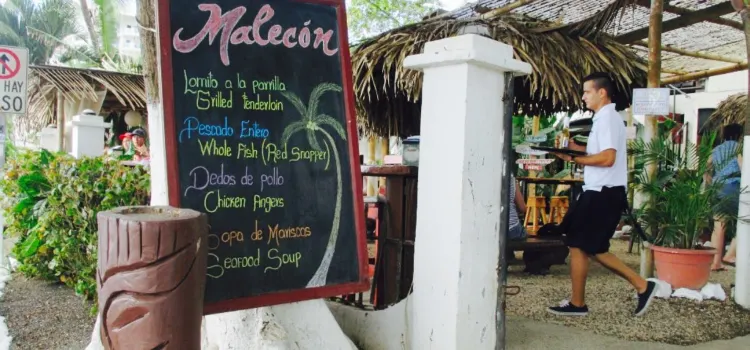 Malecón
Lomito a la parrilla
Grilled Tenderloin
Pescado Entero
Whole Fish (Red Snapper)
Dedos de pollo
Chicken Fingers
Sopa de Mariscos
Seafood Soup
HAY
SO